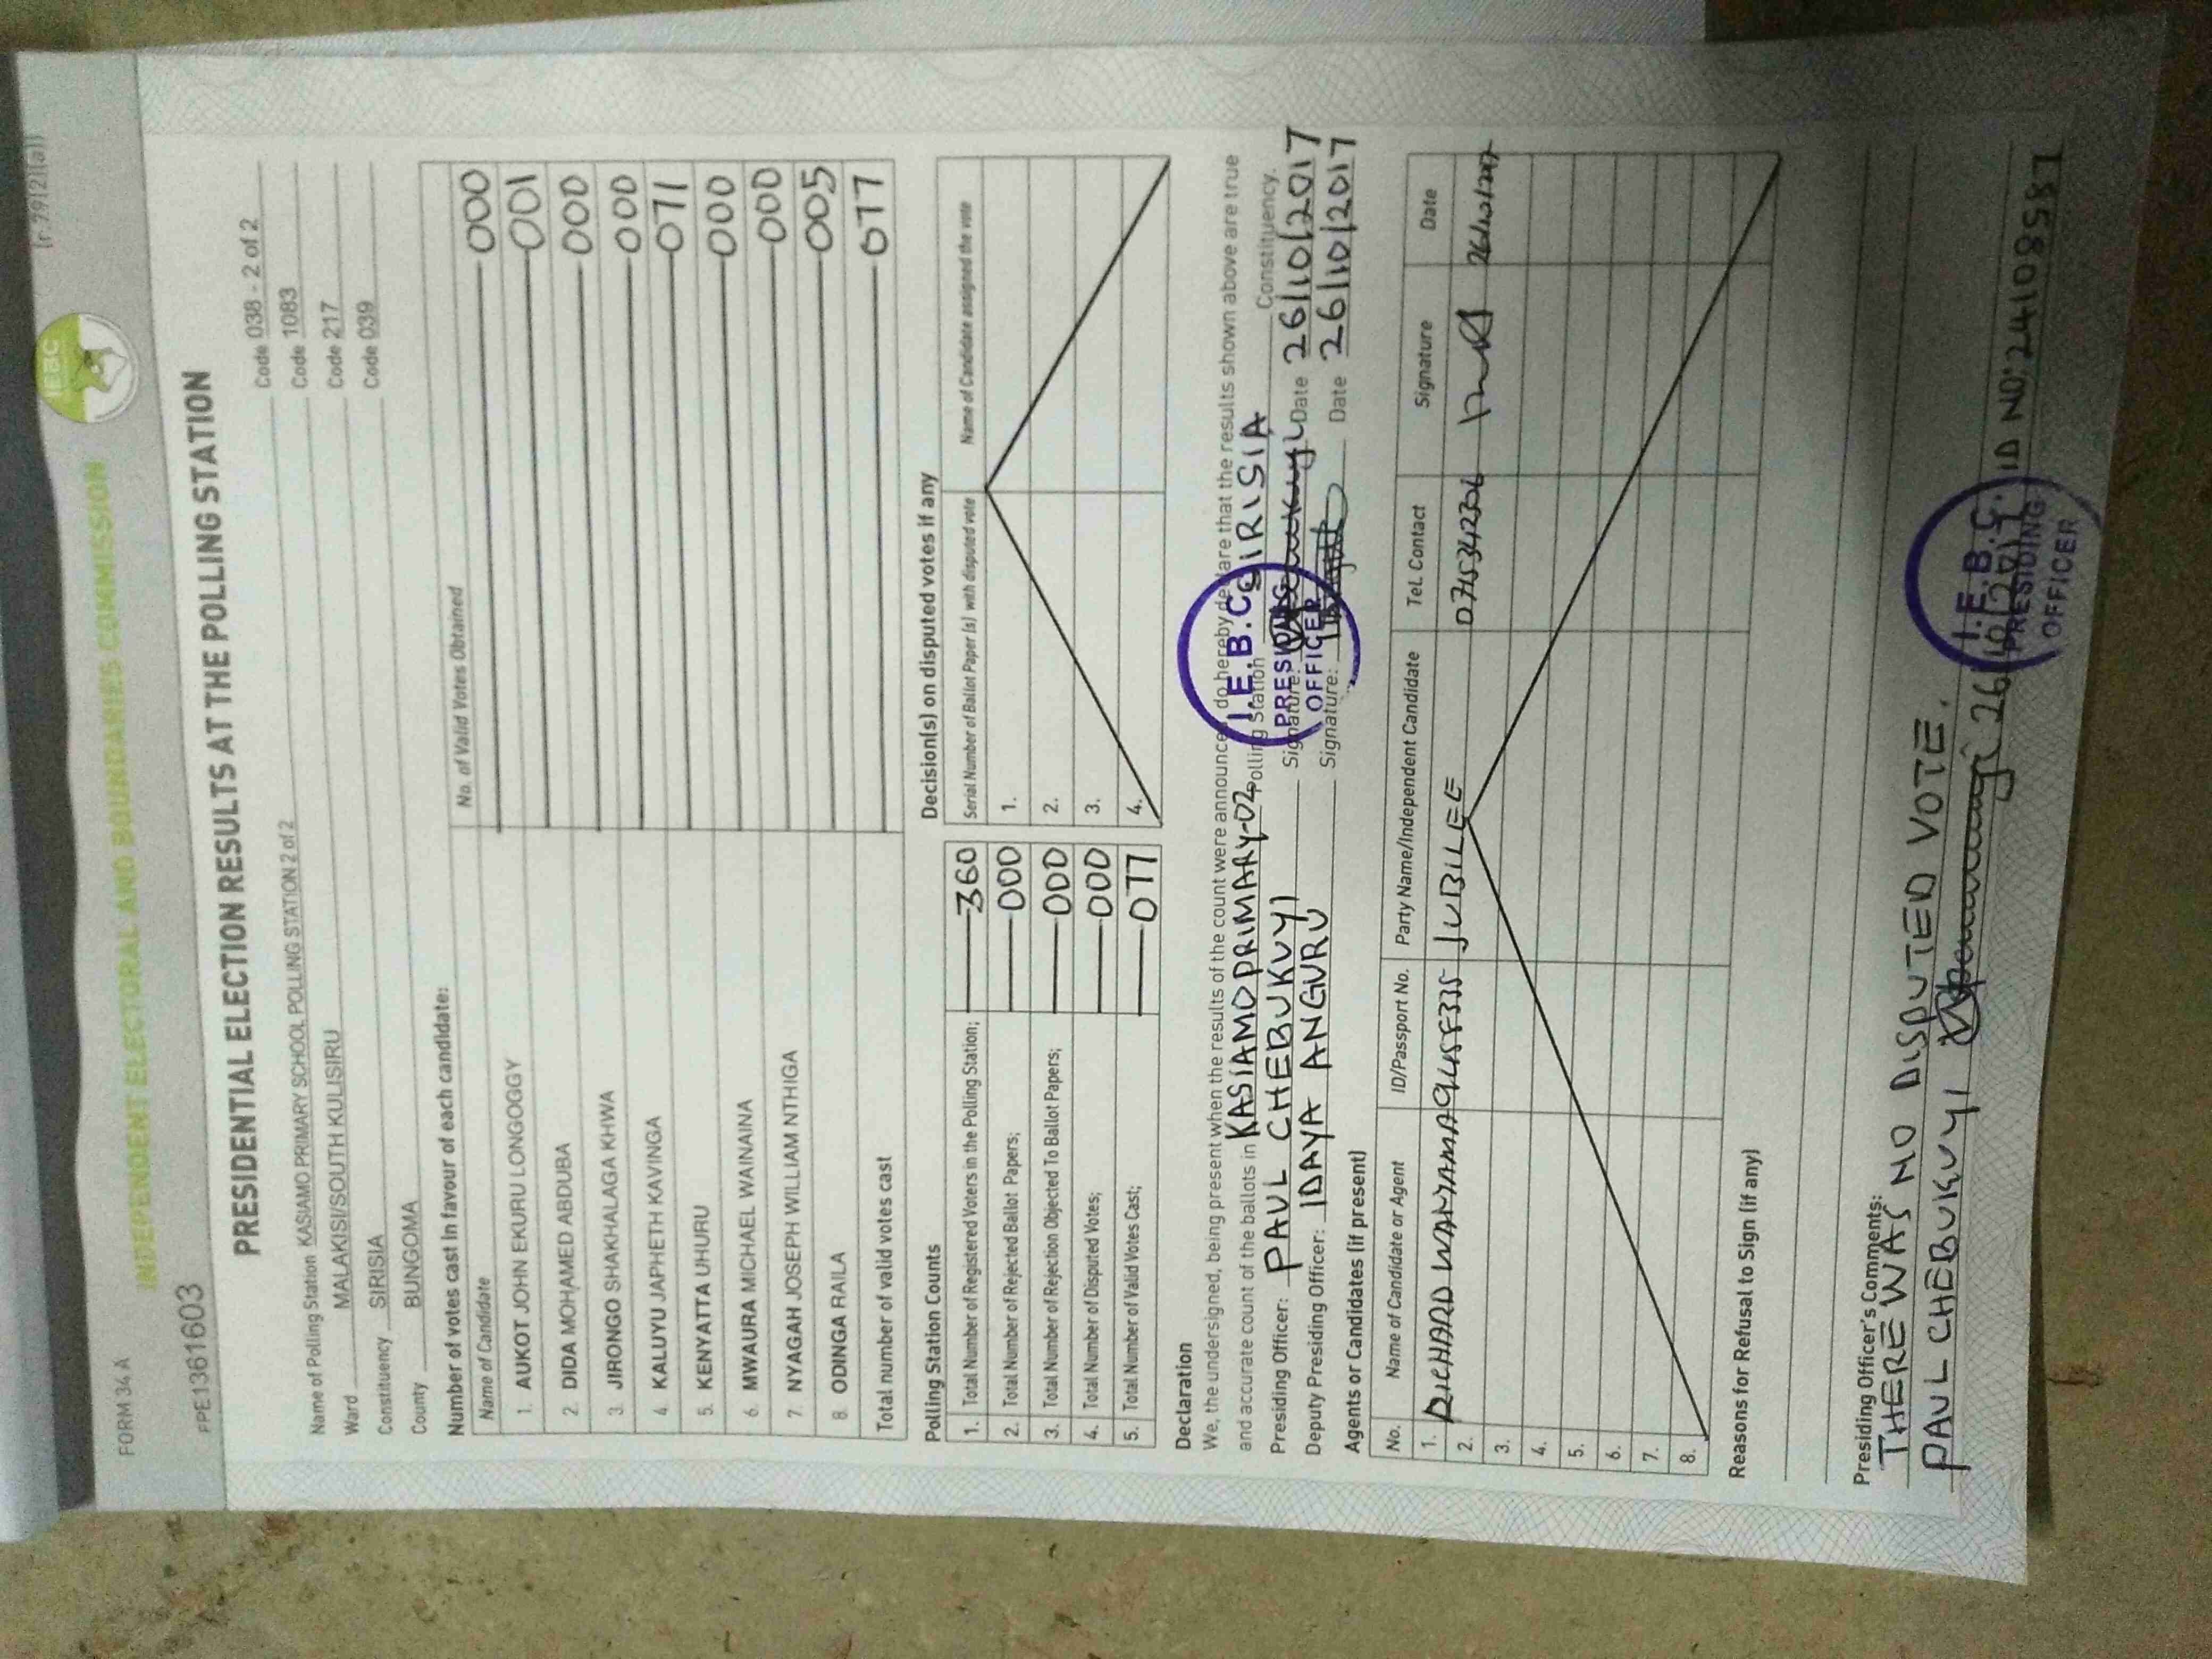 FORM 34 A (r.79(2)(a))
IEBC
INDEPENDENT ELECTORAL AND BOUNDARIES COMMISSION
FPE1361603
PRESIDENTIAL ELECTION RESULTS AT THE POLLING STATION
Name of Polling Station KASIAMO PRIMARY SCHOOL POLLING STATION 2 of 2 Code 038 - 2 of 2
Ward MALAKISI/SOUTH KULISIRU Code 1083
Constituency SIRISIA Code 217
County BUNGOMA Code 039
Number of votes cast in favour of each candidate:
Name of Candidate No. of Valid Votes Obtained
1. AUKOT JOHN EKURU LONGOGGY 000
2. DIDA MOHAMED ABDUBA 001
3. JIRONGO SHAKHALAGA KHWA 000
4. KALUYU JAPHETH KAVINGA 000
5. KENYATTA UHURU 071
6. MWAURA MICHAEL WAINAINA 000
7. NYAGAH JOSEPH WILLIAM NTHIGA 000
8. ODINGA RAILA 005
Total number of valid votes cast 077
Polling Station Counts
1. Total Number of Registered Voters in the Polling Station; 360
2. Total Number of Rejected Ballot Papers; 000
3. Total Number of Rejection Objected To Ballot Papers; 000
4. Total Number of Disputed Votes; 000
5. Total Number of Valid Votes Cast; 077
Decision(s) on disputed votes if any
Serial Number of Ballot Paper (s) with disputed vote Name of Candidate assigned the vote
1.
2.
3.
4.
Declaration
We, the undersigned, being present when the results of the count were announced do hereby declare that the results shown above are true
and accurate count of the ballots in KASIAMO PRIMARY-02 Polling Station SIRISIA Constituency.
Presiding Officer: PAUL CHEBUKUYI Signature: Date 26/10/2017
Deputy Presiding Officer: IDAYA ANGURU Signature: Date 26/10/2017
I.E.B.C.
PRESIDING
OFFICER
Agents or Candidates (if present)
No. Name of Candidate or Agent ID/Passport No. Party Name/Independent Candidate Tel. Contact Signature Date
1. RICHARD WANYAMA JUBILEE 26/10/2017
2.
3.
4.
5.
6.
7.
8.
Reasons for Refusal to Sign (if any)
Presiding Officer's Comments:
THERE WAS NO DISPUTED VOTE.
PAUL CHEBUKUYI 26/10/2017 ID NO: 24108581
I.E.B.C.
PRESIDING
OFFICER